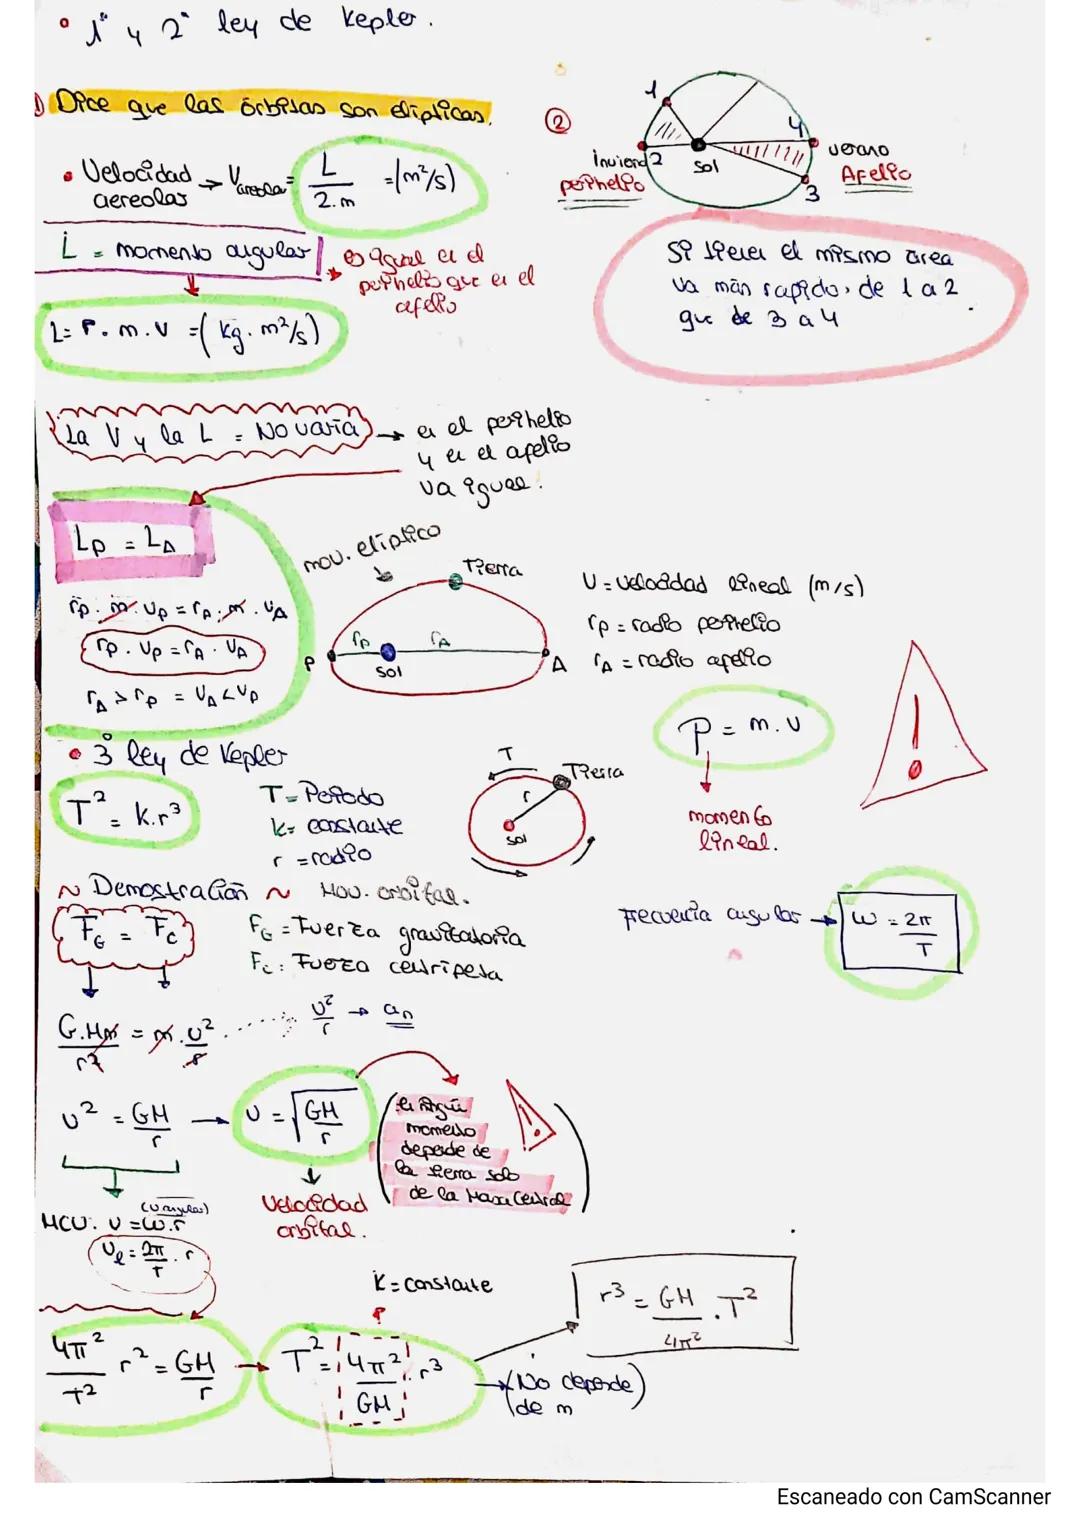 • 1ª y 2ª ley de Kepler.
① Dice que las órbitas son elípticas.
• Velocidad aereolar → Vareola = L / 2.m = (m²/s)
L = momento angular
es igual en el
perihelio que en el
afelio
L = r . m . v = ( kg . m²/s )
②
1
2
3
4
Sol
invierno
perihelio
verano
Afelio
Si tienen el mismo area
va más rapido, de 1 a 2
que de 3 a 4
La V y la L = No varia → en el perihelio
y en el afelio
va igual.
Lp = LA
rp . m . vp = rA . m . vA
rp . vp = rA . vA
rA > rp = vA < vp
mov. eliptico
Tierra
rp
rA
P
Sol
A
v = velocidad lineal (m/s)
rp = radio perihelio
rA = radio afelio
P = m . v
momento
lineal.
!
• 3º ley de Kepler
T² = k.r³
T = Periodo
k = constante
r = radio
T
Tierra
r
Sol
Frecuencia angular → ω = 2π / T
~ Demostración ~ Mov. orbital.
FG = Fc
FG = Fuerza gravitatoria
Fc : Fuerza centripeta
G.Mm / r² = m . v² / r ...... v² / r → an
v² = GM / r → v = √GM / r
Velocidad
orbital.
en ningún
momento
depende de
la tierra solo
de la Masa Central
!
(v angular)
MCU: v = ω.r
vl = 2π / T . r
K = constante
4π² / T² r² = GM / r → T² = 4π² / GM . r³
r³ = GM / 4π² . T²
(No depende
de m)
Escaneado con CamScanner